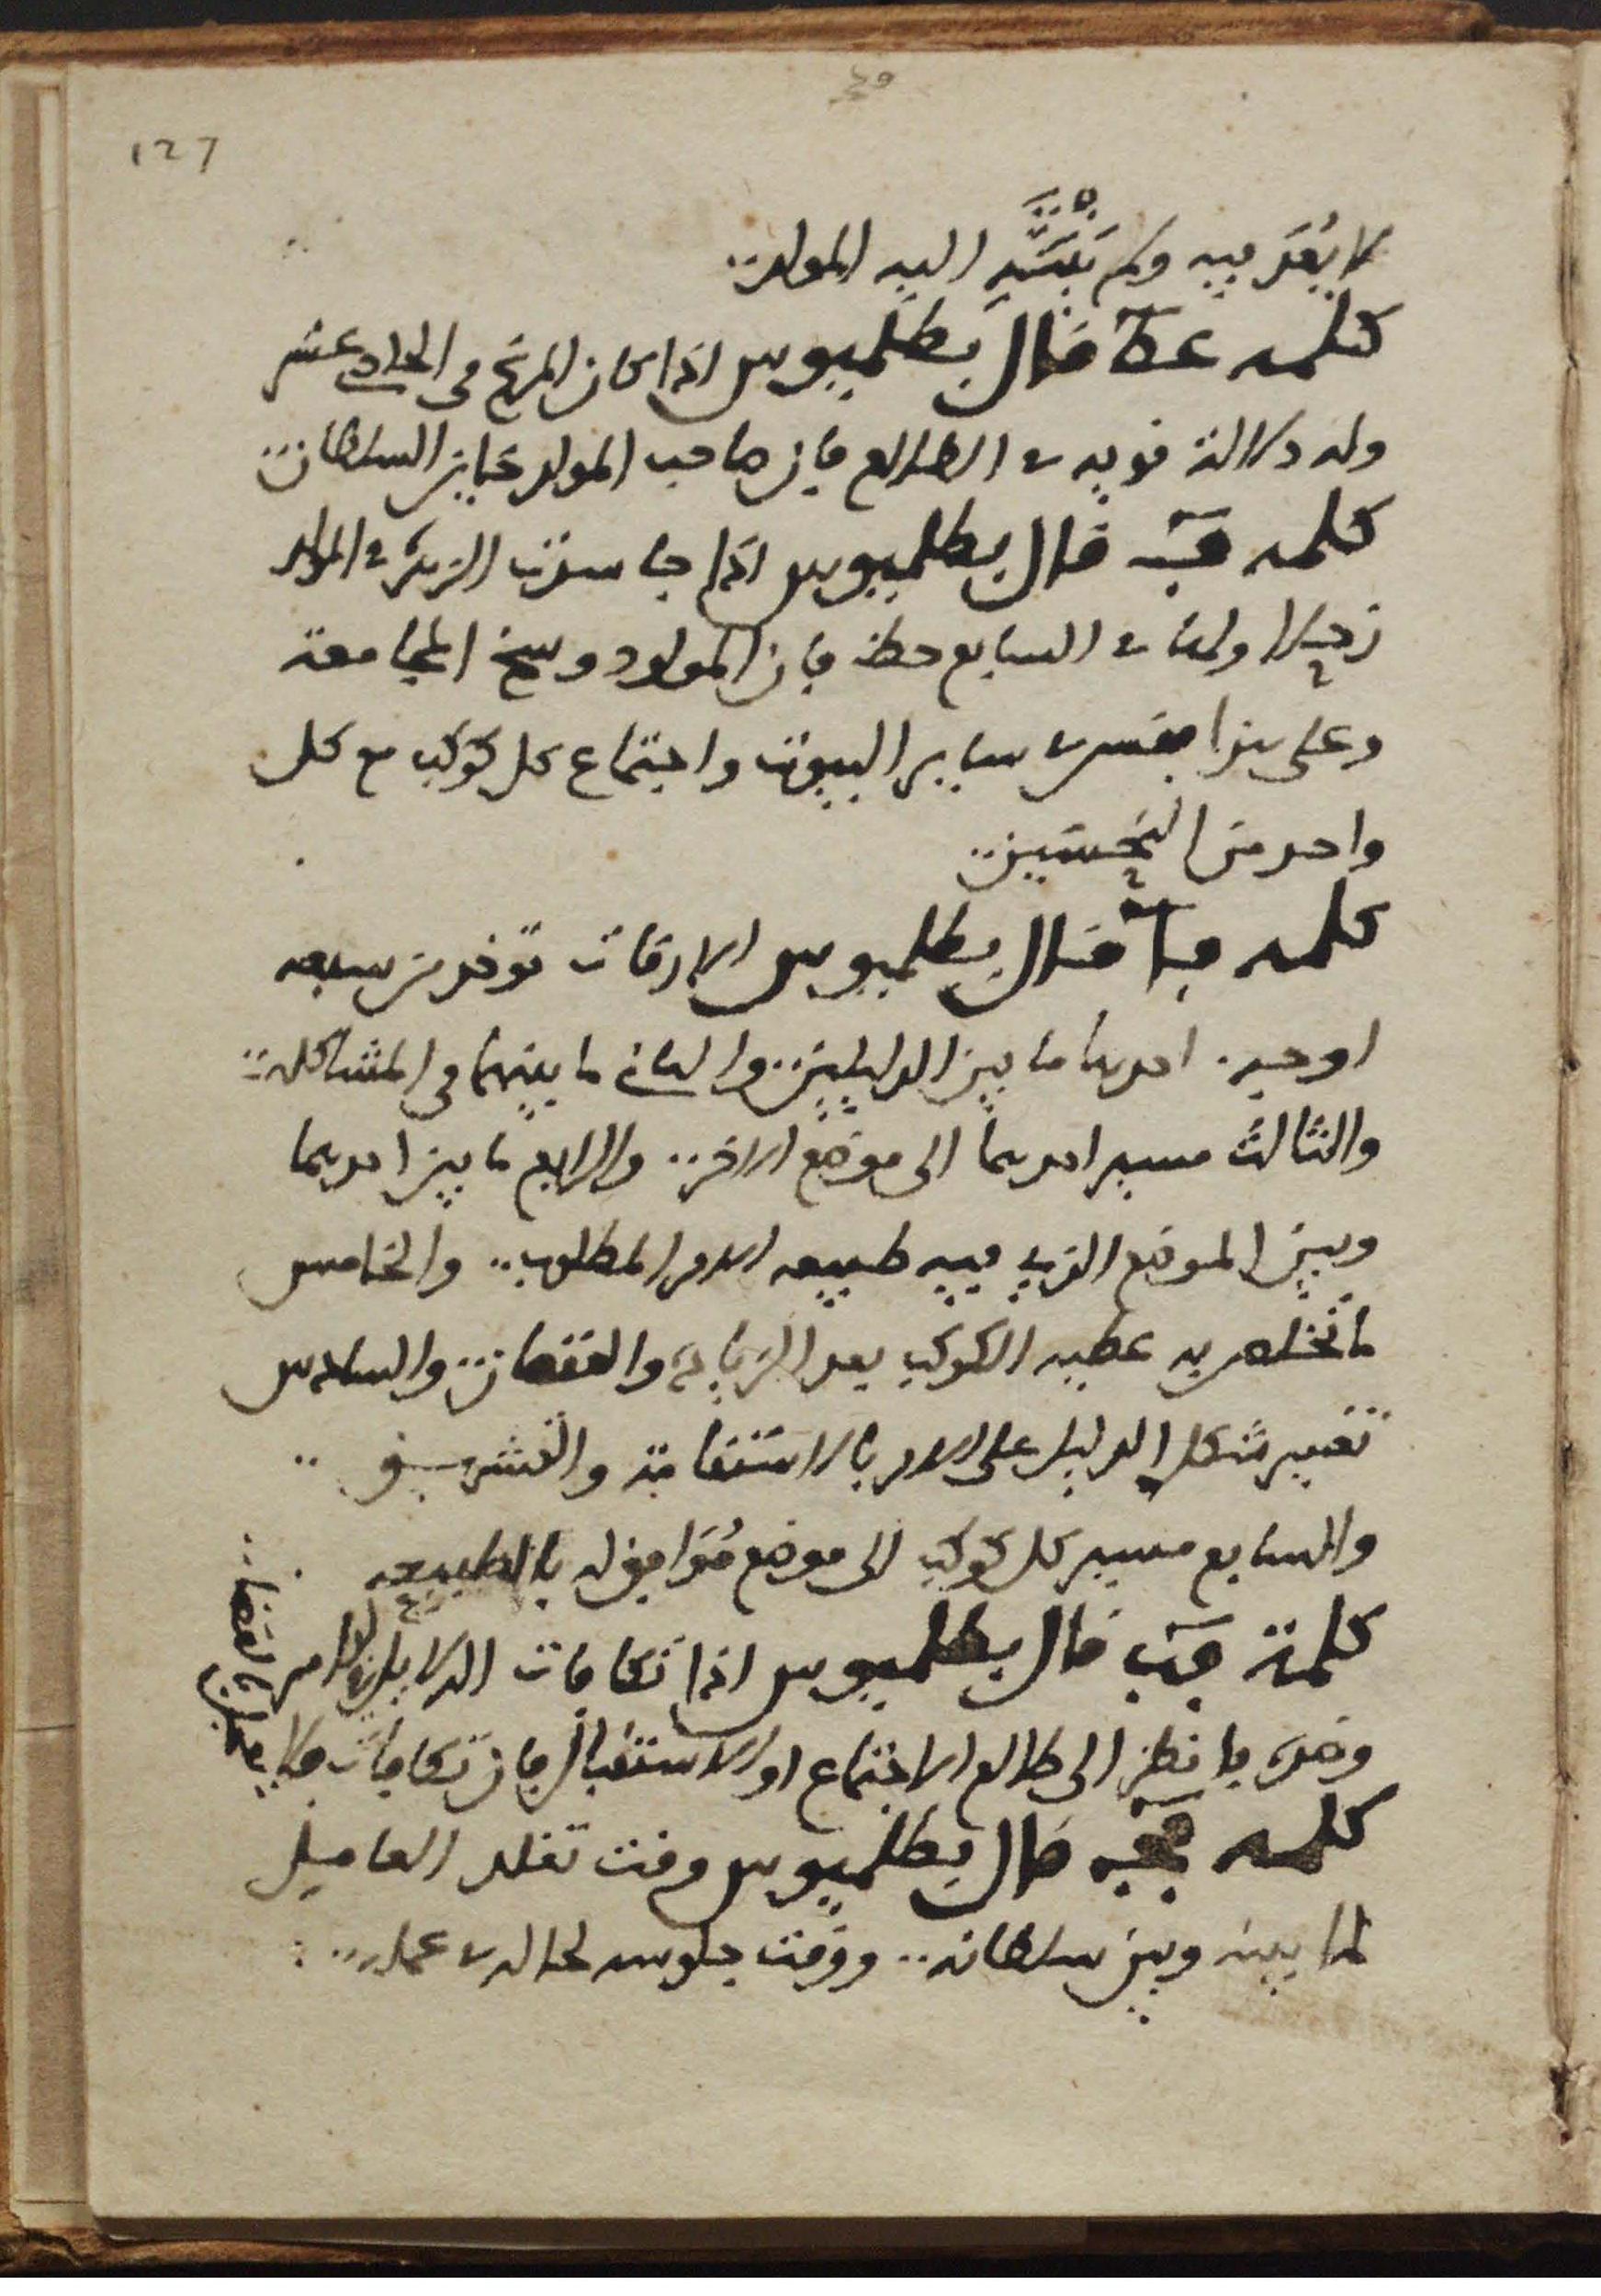 127
لا بُعَد فيه ولم ... اليه المولد
كلمه عط قال بطلميوس اذا كان المريخ في الحادي عشر
وله دلالة قويه ے الطالع فان صاحب المولد يخاين السلطان
كلمه ف قال بطلميوس اذا جاسدت الزهرة ے المولد
زحلا ولها ے السابع حظ فان المولود وسخ المجامعة
وعلى هذا فقس ے ساير البيوت واجتماع كل كوكب مع كل
واحد من النحسين
كلمه فا قال بطلميوس الاوقات توخذ من سبعه
اوجه. احدها ما بين الدليلين والثاني ما بينهما في المشاكله
والثالث مسير احدهما الى موضع الاخر والرابع ما بين احدهما
وبين الموضع الذي فيه طبيعه الامر المطلوب والخامس
ما تختلف به عطيه الكوكب بعد الزيادة والنقصان والسادس
تغيير شكل الدليل على الامر بالاستقامة والتشريق
والسابع مسير كل كوكب الى موضع مُوَافق له بالطبيعه
كلمة فب قال بطلميوس اذا تكافات الدلايل ے الامر
وضده فانظر الى طالع الاجتماع او الاستقبال فان تكافات فلا
كلمه فج قال بطلميوس وقت تقلد العاميل
لما بينه وبين سلطانه ووقت جلوسه لحاله ے عمله